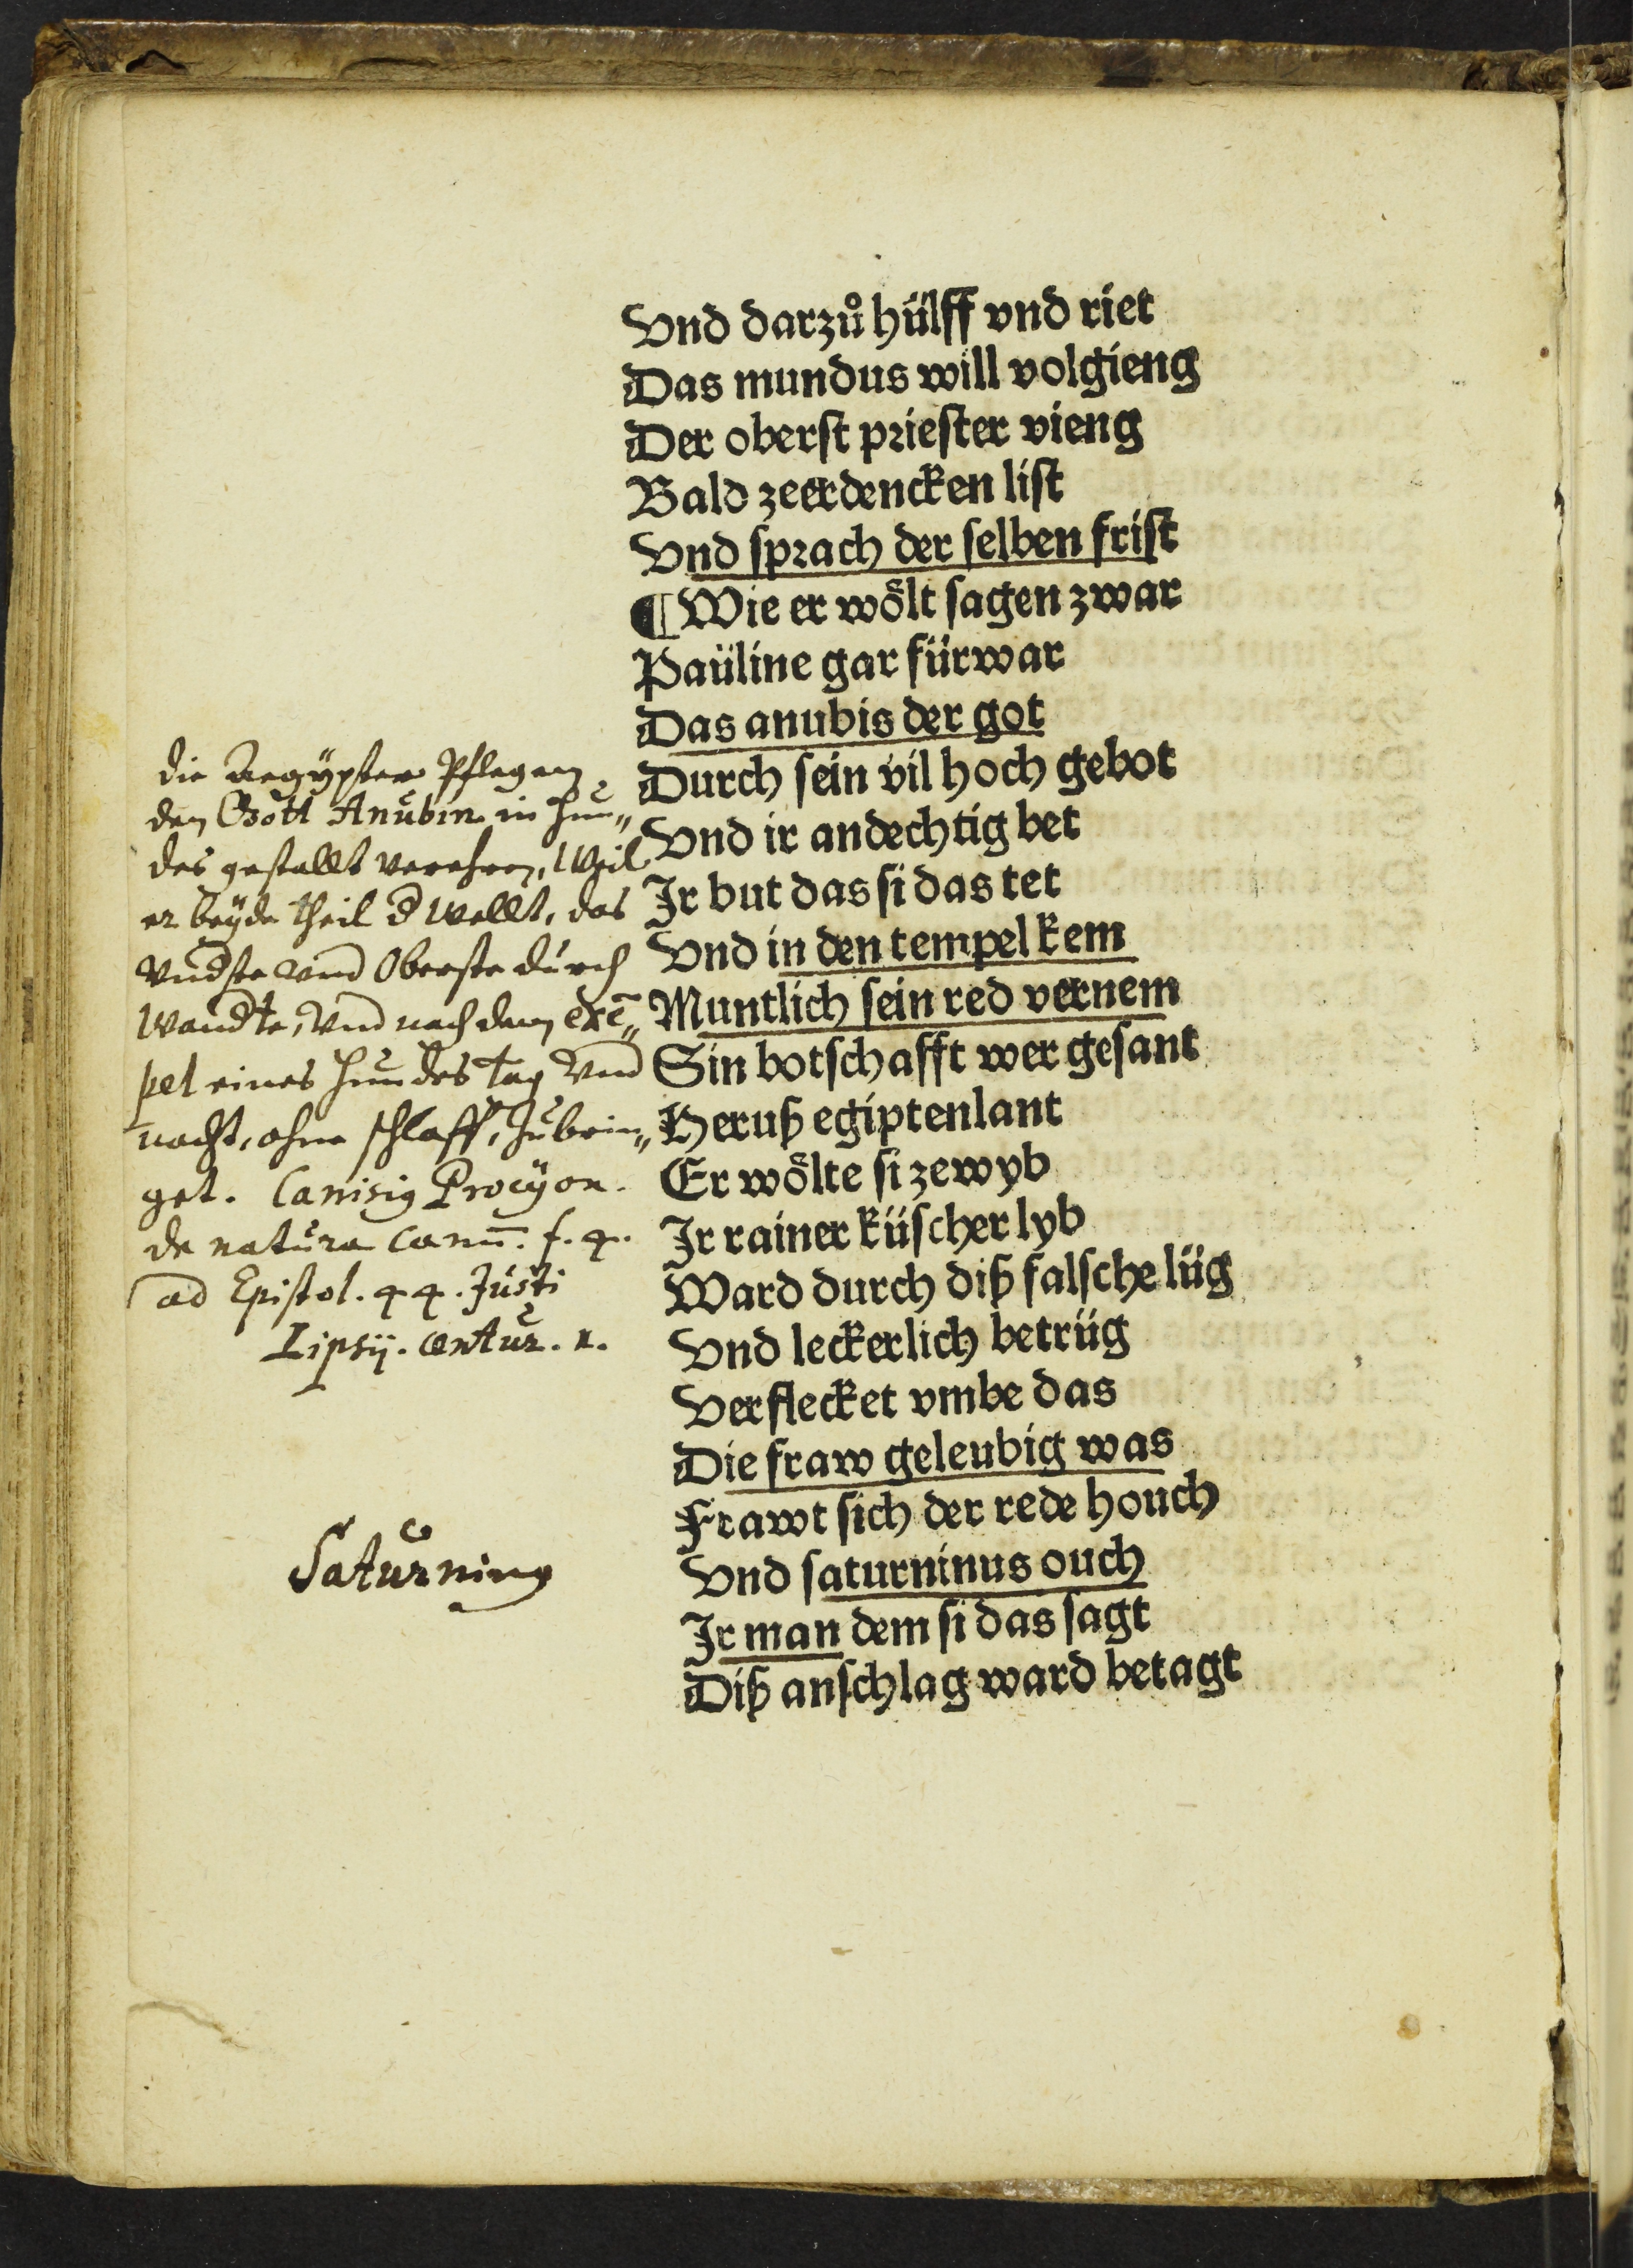 Vnd darzů hülff vnd riet
Das mundus will volgieng
Der oberst priester vieng
Bald zeerdencken list
Vnd sprach der selben frist
¶ Wie er wölt sagen zwar
Paüline gar fürwar
Das anubis der got
Durch sein vil hoch gebot
Vnd ir andechtig bet
Jr but das si das tet
Vnd in den tempel kem
Muntlich sein red vernem
Sin botschafft wer gesant
Heruß egiptenlant
Er wölte si zewyb
Jr rainer küscher lyb
Ward durch diß falsche lüg
Vnd leckerlich betrüg
Verflecket vmbe das
Die fraw geleubig was
Frawt sich der rede houch
Vnd saturninus ouch
Jr man dem si das sagt
Diß anschlag ward betagt
die Aegypter Pflegen
den Gott Anubin in Hun„
des gestallt verehren, Weil
er beyde theil d Wellt, das
Vndste vnd Oberste durch
Wandte, Vnd nach dem exē„
pel eines Hundes tag Vnd
nacht, ohne schlaff, zubrin„
get. Canisig Procyon.
de natura Canū. f. 4.
ad Epistol. 44. Justi
Lipsij. Centur. 1.
Saturning